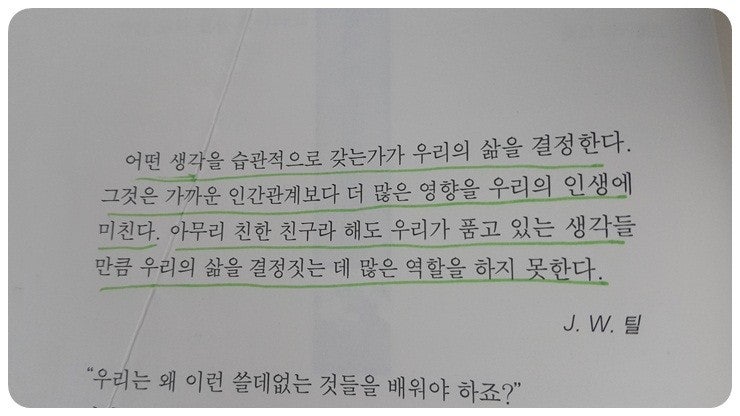 어떤 생각을 습관적으로 갖는가가 우리의 삶을 결정한다.
그것은 가까운 인간관계보다 더 많은 영향을 우리의 인생에
미친다. 아무리 친한 친구라 해도 우리가 품고 있는 생각들
만큼 우리의 삶을 결정짓는 데 많은 역할을 하지 못한다.
J. W. 틸
“우리는 왜 이런 쓸데없는 것들을 배워야 하죠?”